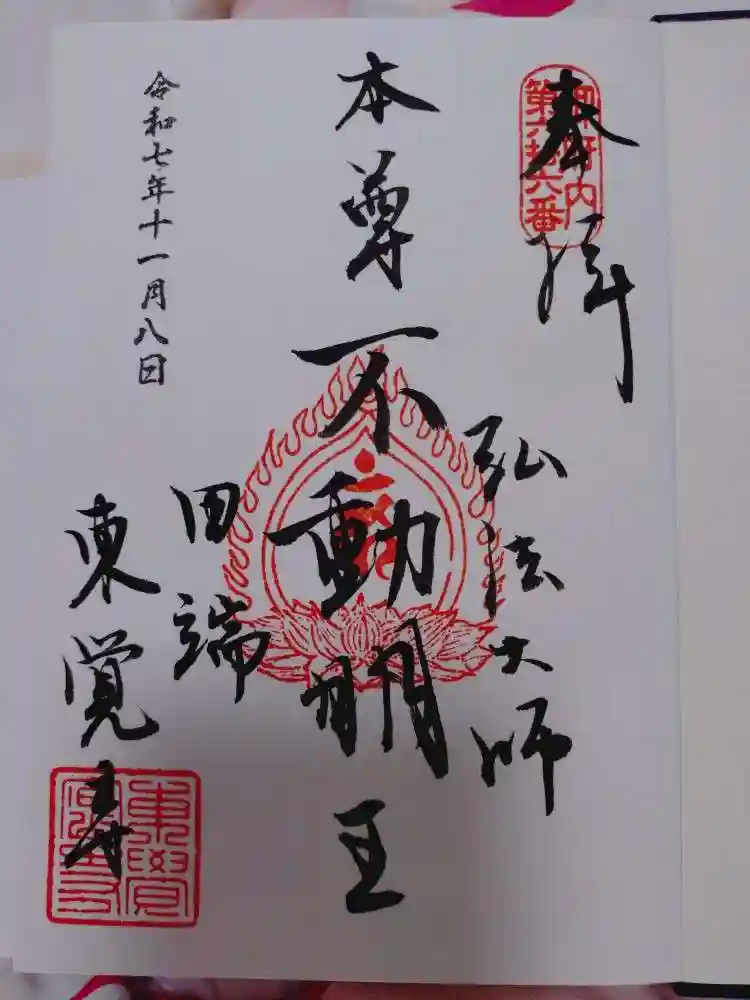 御府内
第六拾六番
奉拝
弘法大師
本尊不動明王
田端
東覚寺
令和七年十一月八日
東覺